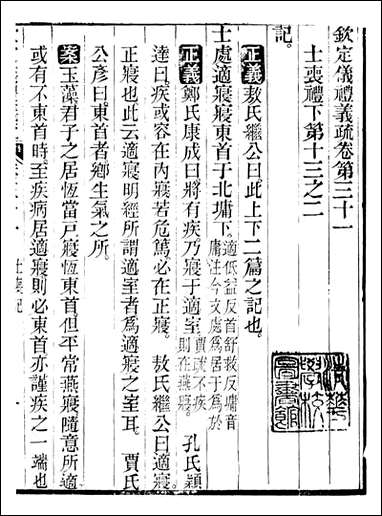 欽定儀禮義疏卷第三十一
士喪禮下第十三之二
記。
正義敖氏繼公曰此上下二篇之記也。
士處適寢寢東首于北墉下。適低益反首舒救反墉音庸注今文處為居于為於
正義鄭氏康成曰將有疾乃寢于適室。賈疏不疾則在燕寢。孔氏穎
達曰疾或容在內寢若危篤必在正寢。敖氏繼公曰適寢
正寢也此云適寢明經所謂適室者為適寢之室耳。賈氏
公彥曰東首者鄉生氣之所。
案玉藻君子之居恆當戶寢恆東首但平常燕寢隨意所適
或有不東首時至疾病居適寢則必東首亦謹疾之一端也
清華學校圖書館